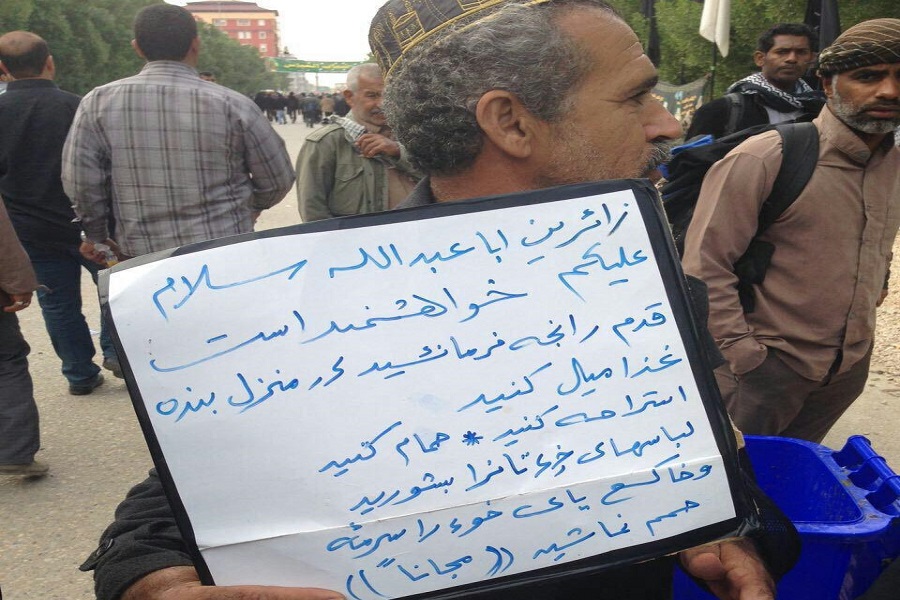 زائرین ابا عبدالله سلام
علیکم خواهشمند است
قدم رانجه فرمائید در منزل بنده
غذا میل کنید
استراحه کنید * حمام کنید
لباسهای خود تانرا بشورید
وخاک پای خود را سرمه
نمائید ((مجاناً))